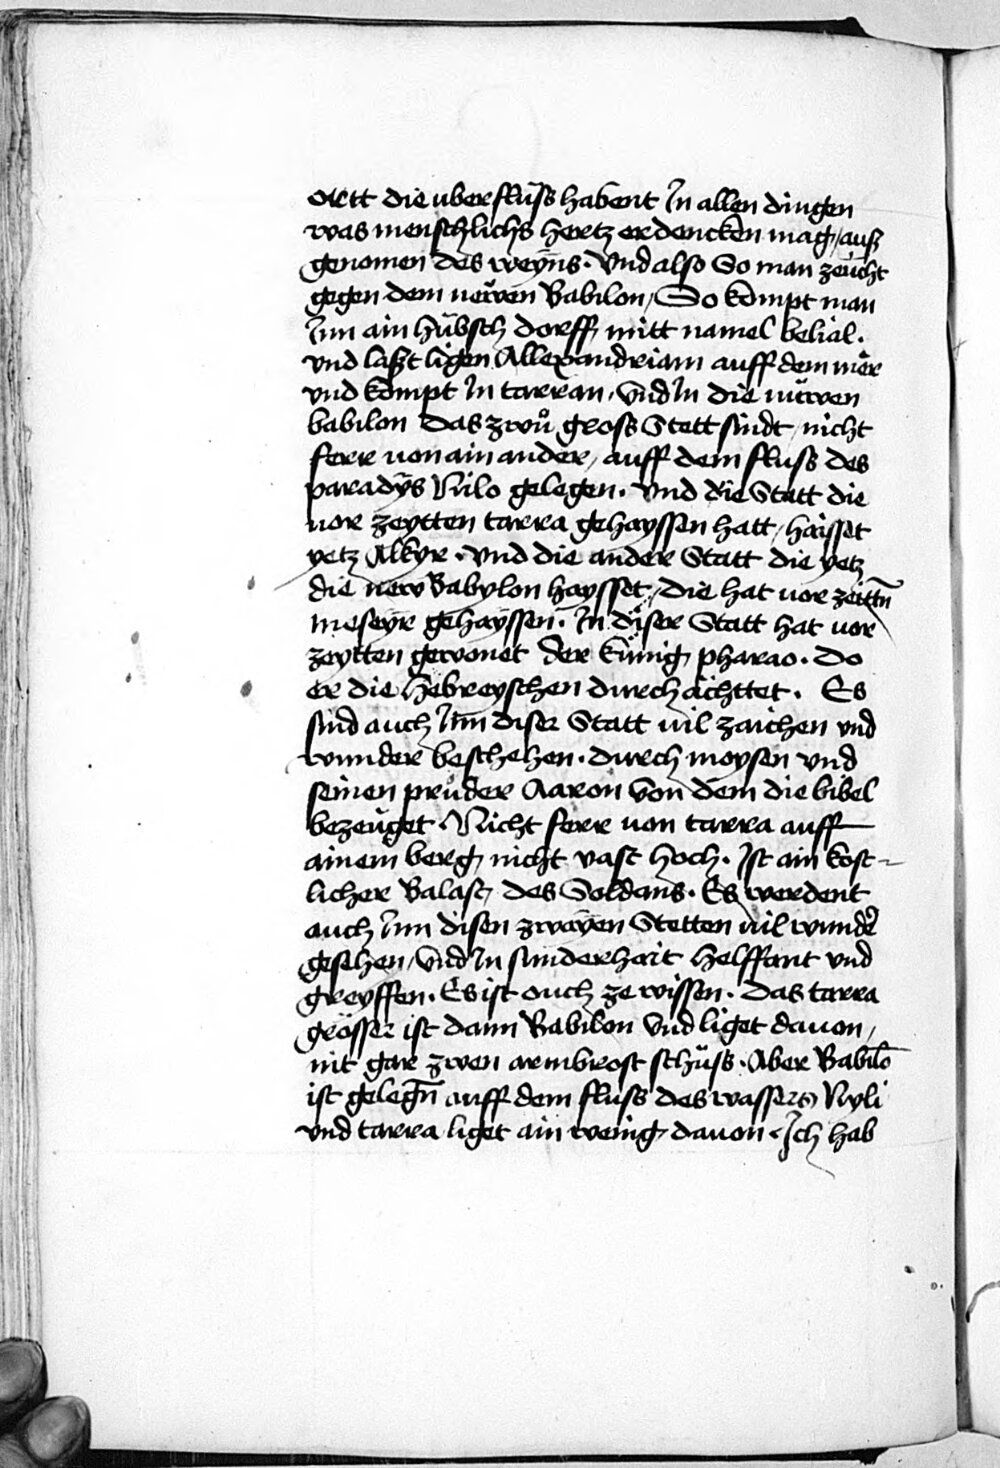 ortt die uberflüss habent In allen dingen
was menschlichs hertz erdencken mag / auß
genomen des weyns. Und also So man zeücht
gegen dem neẅen Babilon, So kompt man
Inn ain hübsch dorff mitt namel belial.
und laßt ligen Allexandriam auff dem mer
und kompt In tarran, Und In die nüwen
babilon das zwů gross Stett sindt, nicht
ferr uon ain ander, auff dem fluss des
paradÿs Nilo gelegen. Und die Statt die
uor zeytten tarra gehayssen hatt, haisset
yetz Alkyr. Und die ander Statt die yetz
die new Babylon haysset, die hat uor zeittn̄
meseyr gehayssen. In diser Statt hat uor
zeytten gewonet der künig pharao. Do
er die Hebreyschen durchächttet. Es
sind auch Inn diser Statt uil zaichen und
wunder beschehen. durch moysen und
seinen prüder Aaron von dem die bibel
bezeüget. Nicht ferr uon tarra auff
ainem berg nicht vast hoch. Ist ain kost-
licher Balast, des Soldans. Es werdent
auch Inn disen zwayen Stetten uil wunder
gesehen, Und In sunderhait helffant und
greyffen. Es ist ouch ze wissen. Das tarra
grösser ist dann Babilon Und liget dauon,
nit gar zwen armbrost schüss. Aber Babilō
ist gelegn̄ auff dem fluss des wassers Nyli
und tarra liget ain wenig dauon. Ich hab